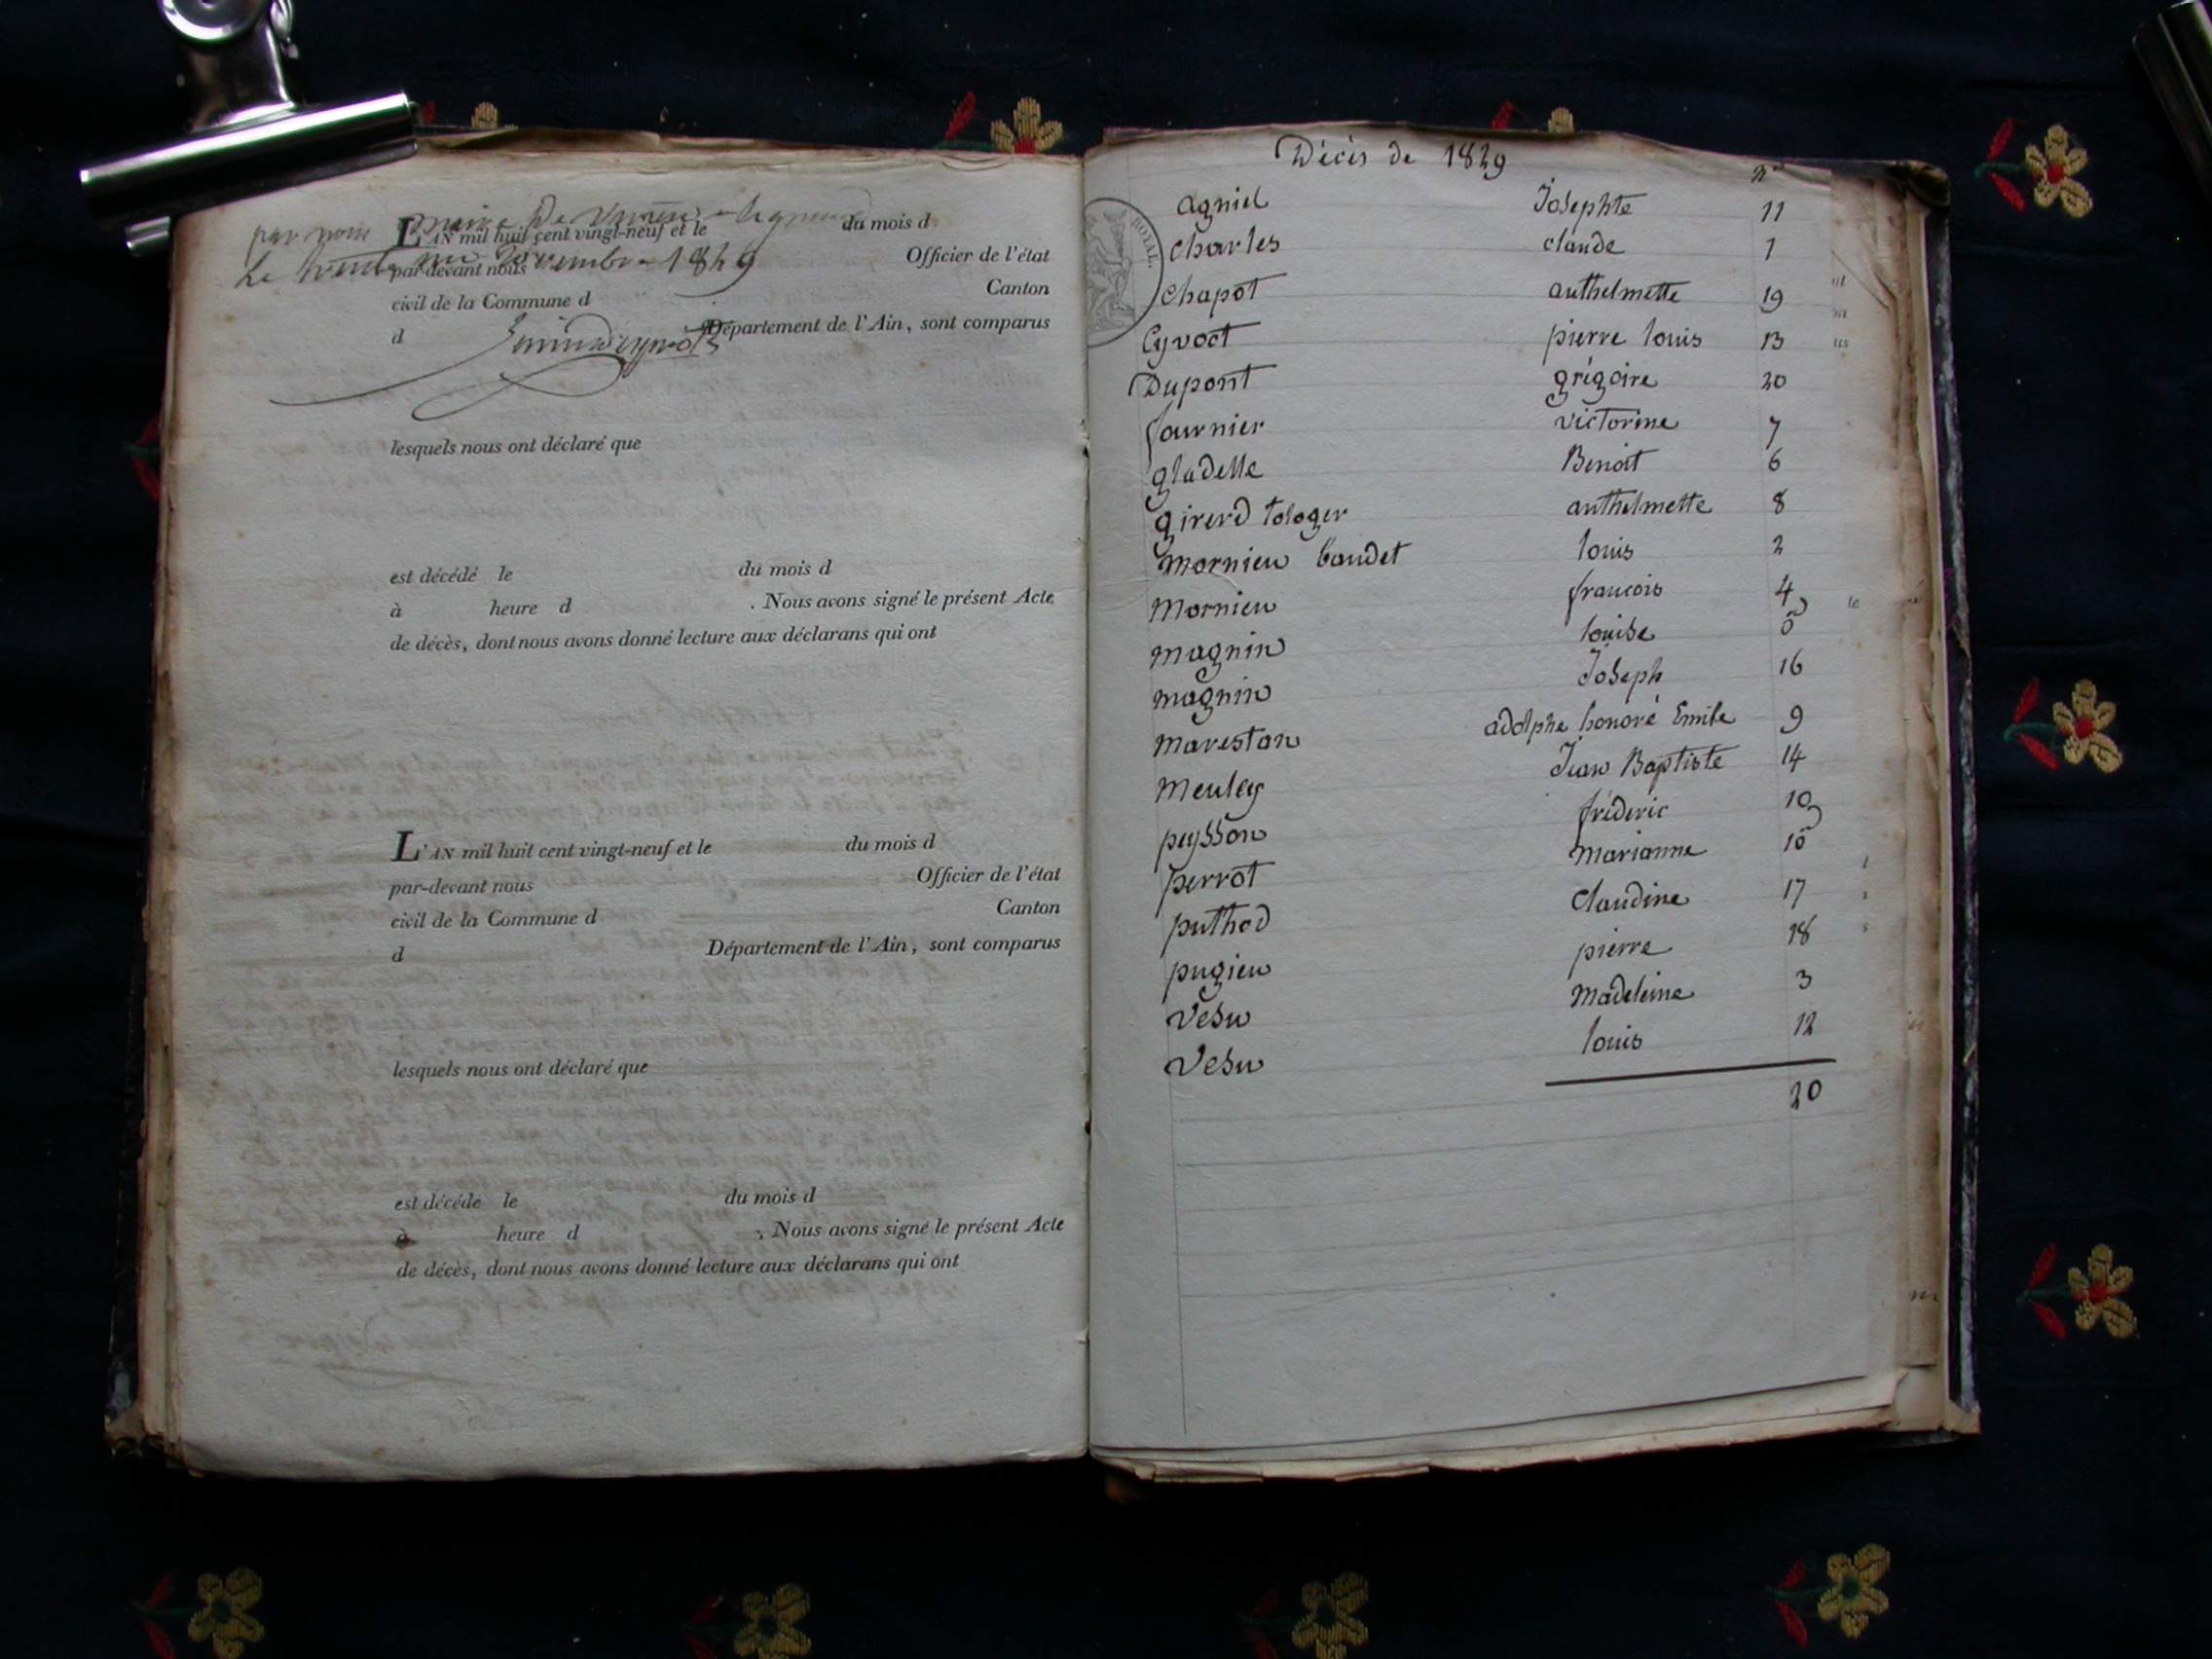 par nous maire De
L'AN mil huit cent vingt-neuf et le du mois d
Le trente un Decembre 1829
par-devant nous Officier de l'état
civil de la Commune d Canton
d Département de l'Ain, sont comparus
lesquels nous ont déclaré que
est décédé le du mois d
à heure d . Nous avons signé le présent Acte
de décès, dont nous avons donné lecture aux déclarans qui ont
L'AN mil huit cent vingt-neuf et le du mois d
par-devant nous Officier de l'état
civil de la Commune d Canton
d Département de l'Ain, sont comparus
lesquels nous ont déclaré que
est décédé le du mois d
à heure d . Nous avons signé le présent Acte
de décès, dont nous avons donné lecture aux déclarans qui ont
Décès de 1829
ROYAL.
n.os
agniel Josephte 11
Charles claude 1
Chapot anthelmette 19
Cyvoct pierre louis 13
Dupont grégoire 20
fournier victorine 7
gladelle Benoit 6
girerd tologer anthelmette 8
Mornieu baudet louis 2
Mornieu francois 4
magnin louise 5
magnin Joseph 16
marestan adolphe honoré Emile 9
Meuley Jean Baptiste 14
peysson fréderic 10
perrot Marianne 15
puthod Claudine 17
pugieu pierre 18
Vesu Madeleine 3
Vesu louis 12
20